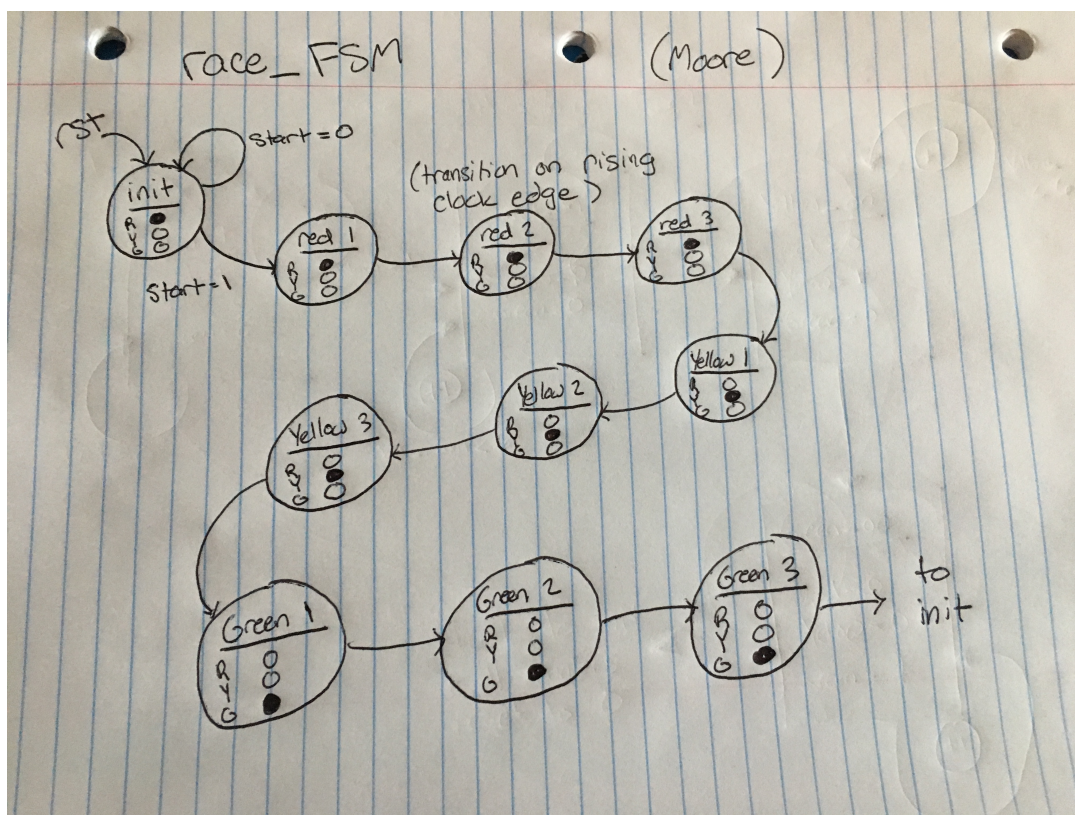 race_FSM (Moore)
rst
start=0
init
R
Y
G
start=1
(transition on rising
clock edge)
red 1
R
Y
G
red 2
R
Y
G
red 3
R
Y
G
Yellow 1
R
Y
G
Yellow 2
R
Y
G
Yellow 3
R
Y
G
Green 1
R
Y
G
Green 2
R
Y
G
Green 3
R
Y
G
to
init